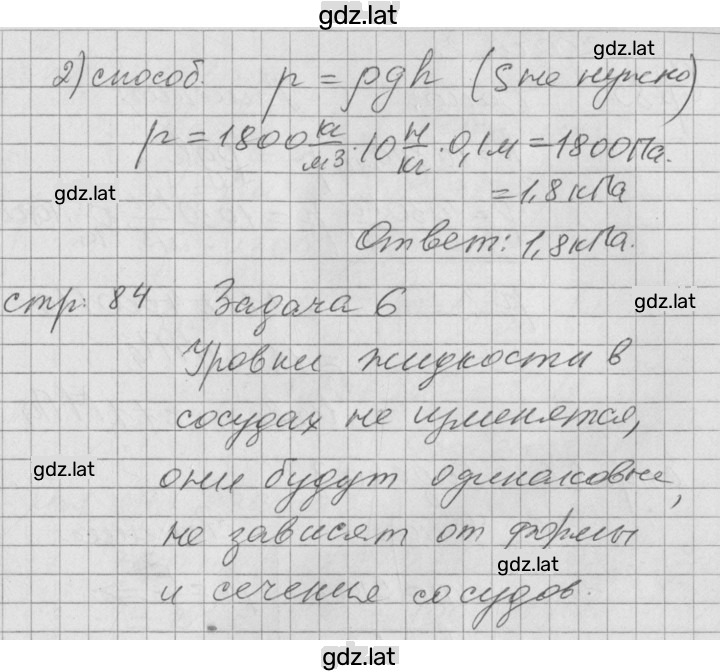 gdz.lat
gdz.lat
2) способ. p = ρgh (S не нужно)
p = 1800 кг/м3 · 10 Н/кг · 0,1м = 1800Па.
gdz.lat
= 1,8 кПа
Ответ: 1,8 кПа.
стр. 84 Задача 6
gdz.lat
Уровни жидкости в
сосудах не изменятся,
gdz.lat
они будут одинаковые,
не зависят от формы
gdz.lat
и сечения сосудов.
gdz.lat